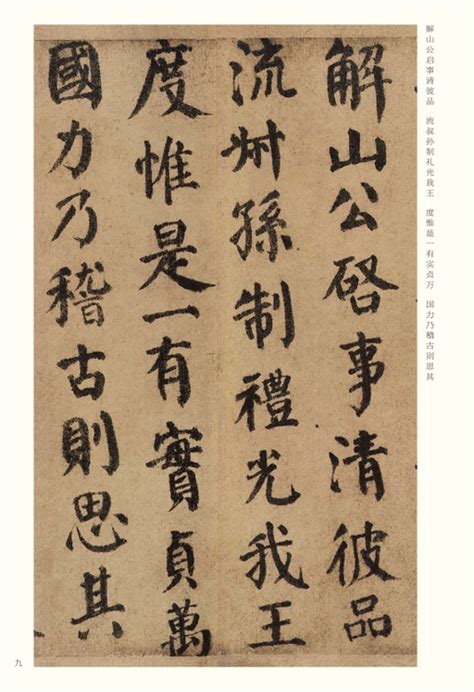 解山公启事清彼品　流叔孙制礼光我王　度惟是一有实贞万　国力乃稽古则思其
解山公啓事清彼品
流叔孫制禮光我王
度惟是一有實貞萬
國力乃稽古則思其
九